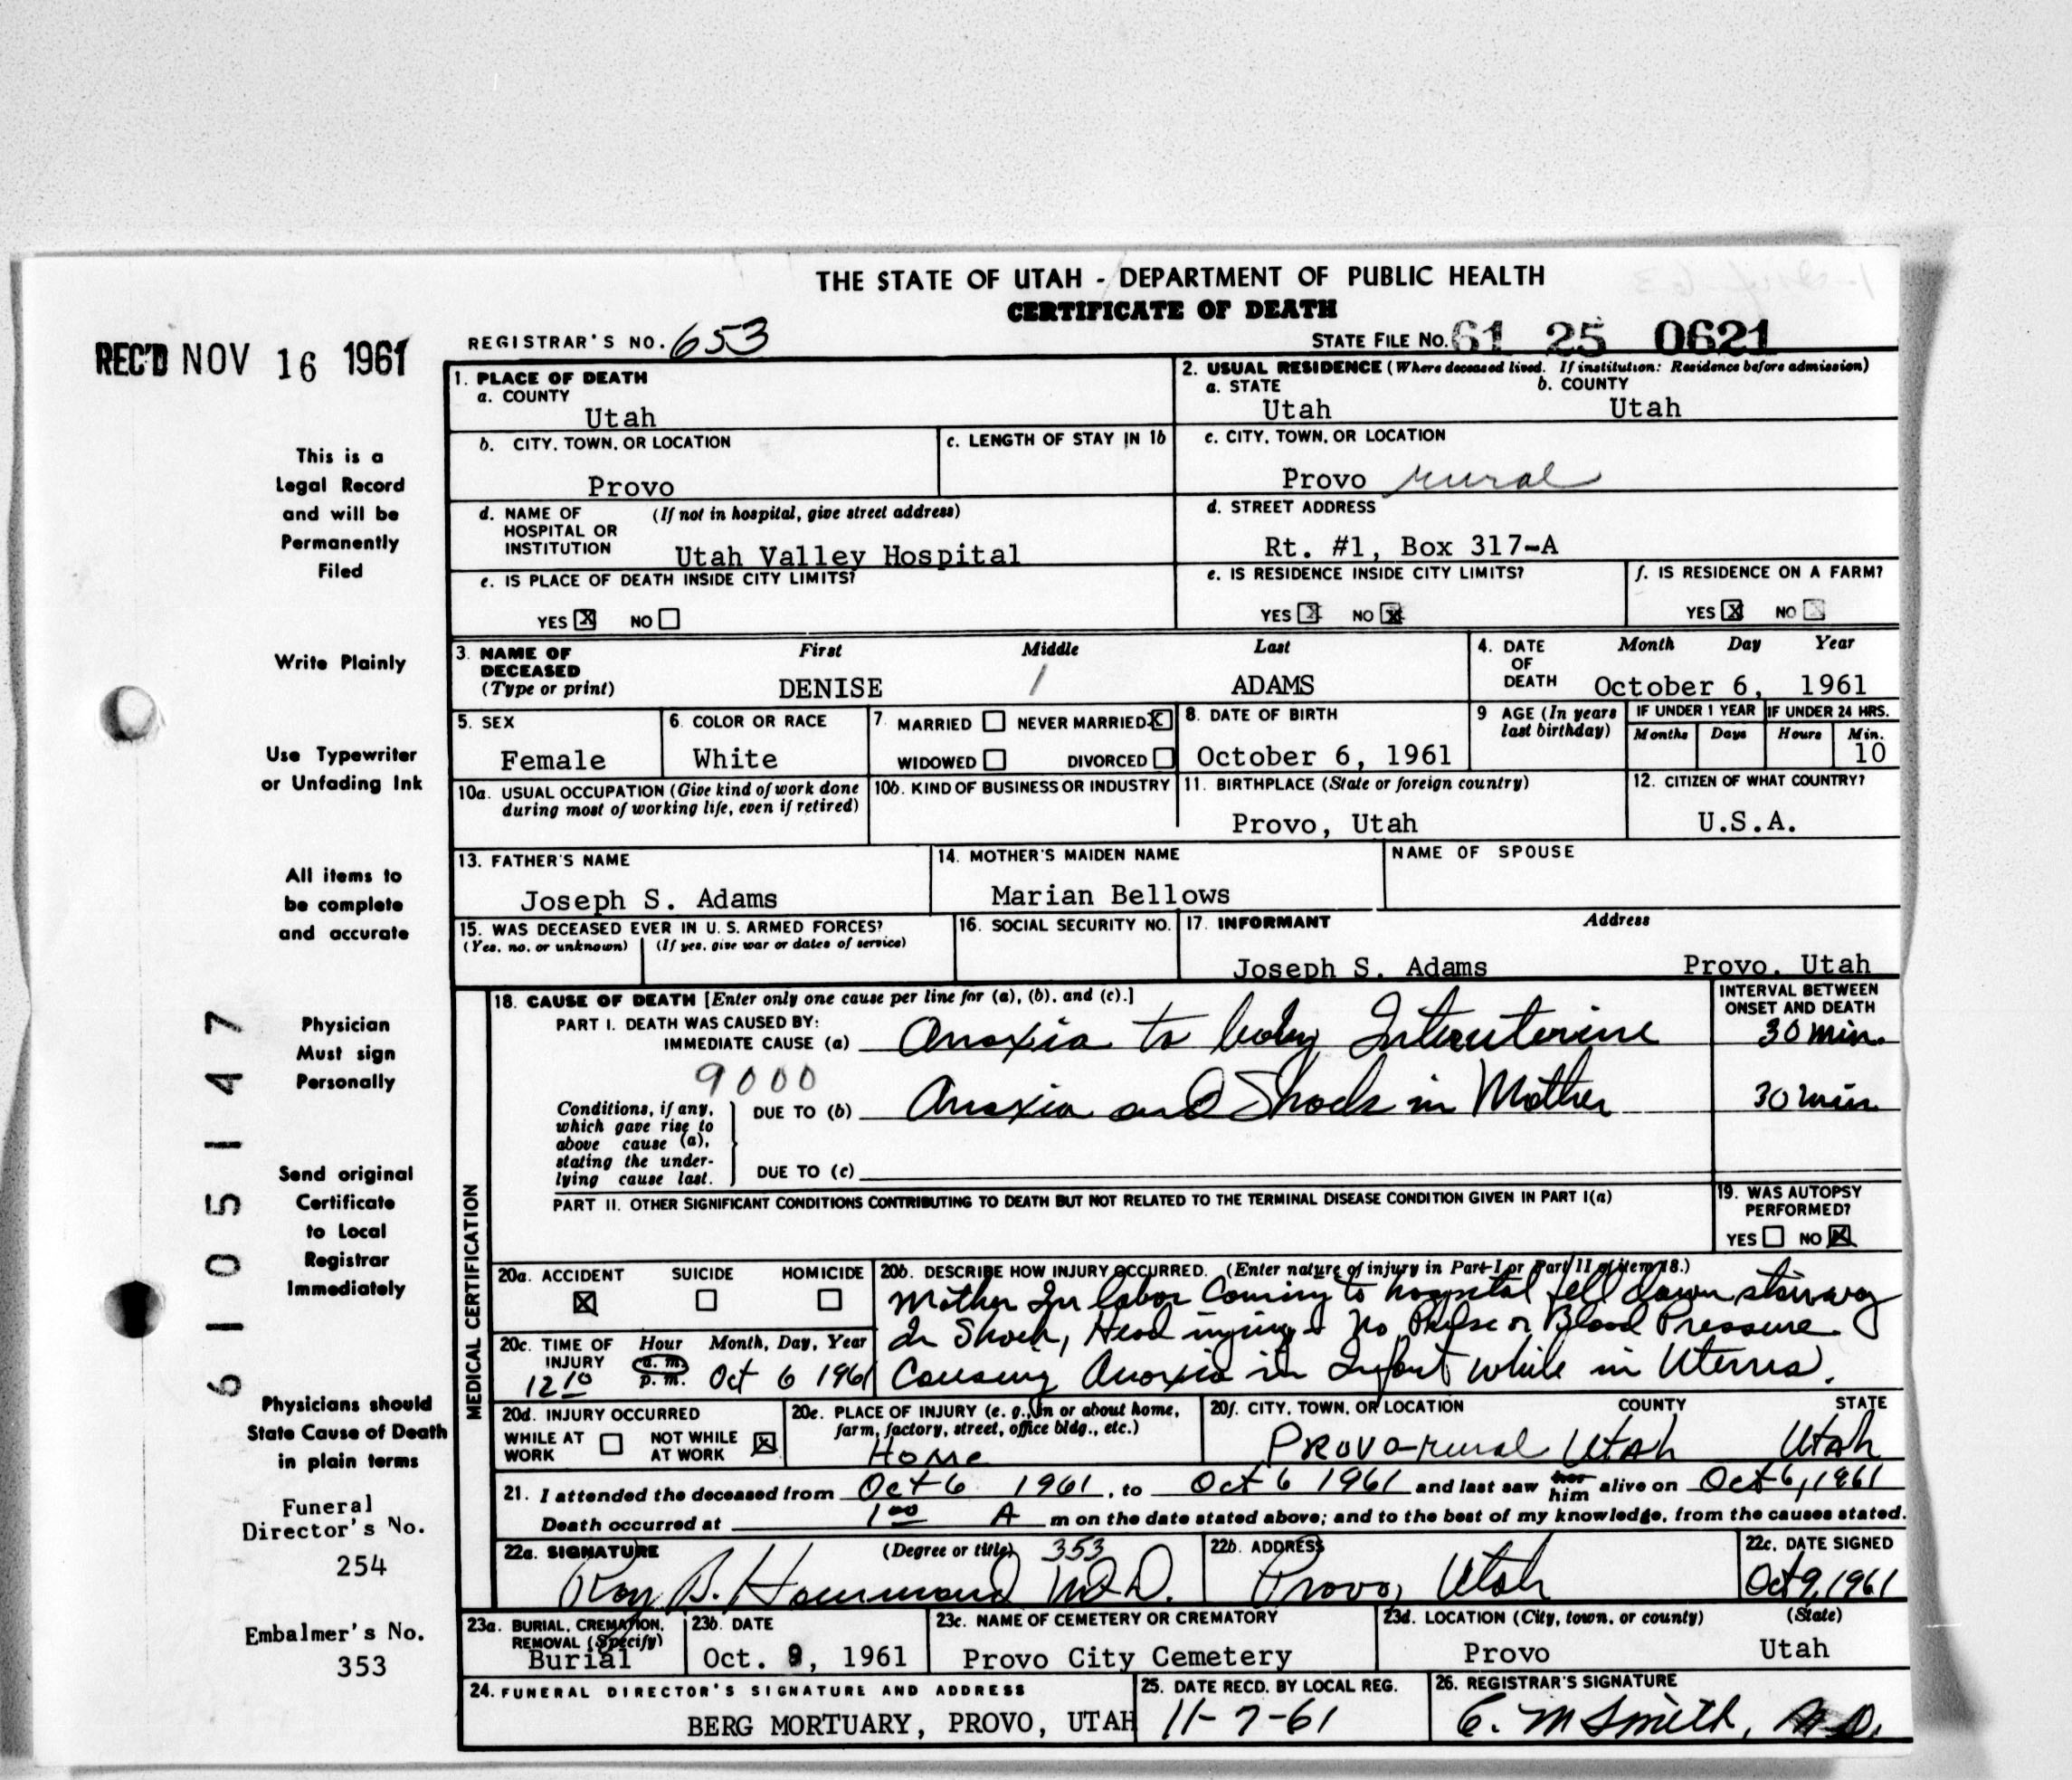 THE STATE OF UTAH - DEPARTMENT OF PUBLIC HEALTH
CERTIFICATE OF DEATH
REC'D NOV 16 1961
REGISTRAR'S NO. 653
STATE FILE NO. 61 25 0621
This is a
Legal Record
and will be
Permanently
Filed
Write Plainly
Use Typewriter
or Unfading Ink
All items to
be complete
and accurate
Physician
Must sign
Personally
Send original
Certificate
to Local
Registrar
Immediately
Physicians should
State Cause of Death
in plain terms
Funeral
Director's No.
254
Embalmer's No.
353
6105147
1. PLACE OF DEATH
a. COUNTY
Utah
2. USUAL RESIDENCE (Where deceased lived. If institution: Residence before admission)
a. STATE b. COUNTY
Utah Utah
b. CITY, TOWN, OR LOCATION
Provo
c. LENGTH OF STAY IN 1b
c. CITY, TOWN, OR LOCATION
Provo rural
d. NAME OF (If not in hospital, give street address)
HOSPITAL OR
INSTITUTION Utah Valley Hospital
d. STREET ADDRESS
Rt. #1, Box 317-A
e. IS PLACE OF DEATH INSIDE CITY LIMITS?
YES X NO
e. IS RESIDENCE INSIDE CITY LIMITS?
YES X NO X
f. IS RESIDENCE ON A FARM?
YES X NO X
3. NAME OF First Middle Last
DECEASED
(Type or print) DENISE / ADAMS
4. DATE Month Day Year
OF
DEATH October 6, 1961
5. SEX
Female
6. COLOR OR RACE
White
7. MARRIED NEVER MARRIED X
WIDOWED DIVORCED
8. DATE OF BIRTH
October 6, 1961
9 AGE (In years
last birthday)
IF UNDER 1 YEAR
Months Days
IF UNDER 24 HRS.
Hours Min.
10
10a. USUAL OCCUPATION (Give kind of work done
during most of working life, even if retired)
10b. KIND OF BUSINESS OR INDUSTRY
11. BIRTHPLACE (State or foreign country)
Provo, Utah
12. CITIZEN OF WHAT COUNTRY?
U.S.A.
13. FATHER'S NAME
Joseph S. Adams
14. MOTHER'S MAIDEN NAME
Marian Bellows
NAME OF SPOUSE
15. WAS DECEASED EVER IN U. S. ARMED FORCES?
(Yes, no, or unknown) (If yes, give war or dates of service)
16. SOCIAL SECURITY NO.
17. INFORMANT Address
Joseph S. Adams Provo, Utah
MEDICAL CERTIFICATION
18. CAUSE OF DEATH [Enter only one cause per line for (a), (b), and (c).]
INTERVAL BETWEEN
ONSET AND DEATH
PART I. DEATH WAS CAUSED BY:
IMMEDIATE CAUSE (a) Anoxia to baby Interuterine 30 min.
9000
Conditions, if any,
which gave rise to
above cause (a),
stating the under-
lying cause last.
DUE TO (b) Anoxia and Shock in Mother 30 min
DUE TO (c)
PART II. OTHER SIGNIFICANT CONDITIONS CONTRIBUTING TO DEATH BUT NOT RELATED TO THE TERMINAL DISEASE CONDITION GIVEN IN PART I(a)
19. WAS AUTOPSY
PERFORMED?
YES NO X
20a. ACCIDENT SUICIDE HOMICIDE
X
20b. DESCRIBE HOW INJURY OCCURRED. (Enter nature of injury in Part I or Part II of item 18.)
Mother In labor Coming to hospital fell down stairway
In Shock, Head injury & No Pulse or Blood Pressure.
Causing Anoxia in Infant while in Uterus.
20c. TIME OF Hour Month, Day, Year
INJURY a. m.
12 10 p. m. Oct 6 1961
20d. INJURY OCCURRED
WHILE AT WORK NOT WHILE AT WORK X
20e. PLACE OF INJURY (e. g., in or about home,
farm, factory, street, office bldg., etc.)
Home
20f. CITY, TOWN, OR LOCATION COUNTY STATE
Provo-rural Utah Utah
21. I attended the deceased from Oct 6 1961, to Oct 6 1961 and last saw her him alive on Oct 6, 1961
Death occurred at 1 00 A m on the date stated above; and to the best of my knowledge, from the causes stated.
22a. SIGNATURE (Degree or title) 353
Roy B. Hammond M.D.
22b. ADDRESS
Provo, Utah
22c. DATE SIGNED
Oct 9, 1961
23a. BURIAL, CREMATION,
REMOVAL (Specify)
Burial
23b. DATE
Oct. 9, 1961
23c. NAME OF CEMETERY OR CREMATORY
Provo City Cemetery
23d. LOCATION (City, town, or county) (State)
Provo Utah
24. FUNERAL DIRECTOR'S SIGNATURE AND ADDRESS
BERG MORTUARY, PROVO, UTAH
25. DATE RECD. BY LOCAL REG.
11-7-61
26. REGISTRAR'S SIGNATURE
C. M Smith, M.D.